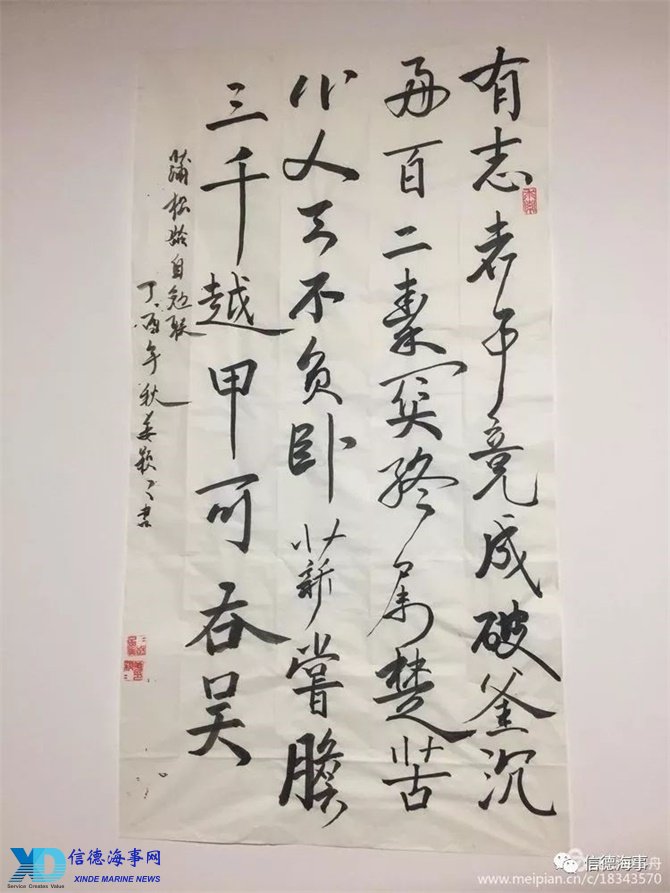 有志者事竟成破釜沉
舟百二秦関終属楚苦
心人天不负卧薪嘗膽
三千越甲可吞吴
蒲松龄自勉联
丁酉年秋姜书
XD
Service Creates Value
信德海事网
XINDE MARINE NEWS
信德海事
舟
www.meipian.cn/c/18343570